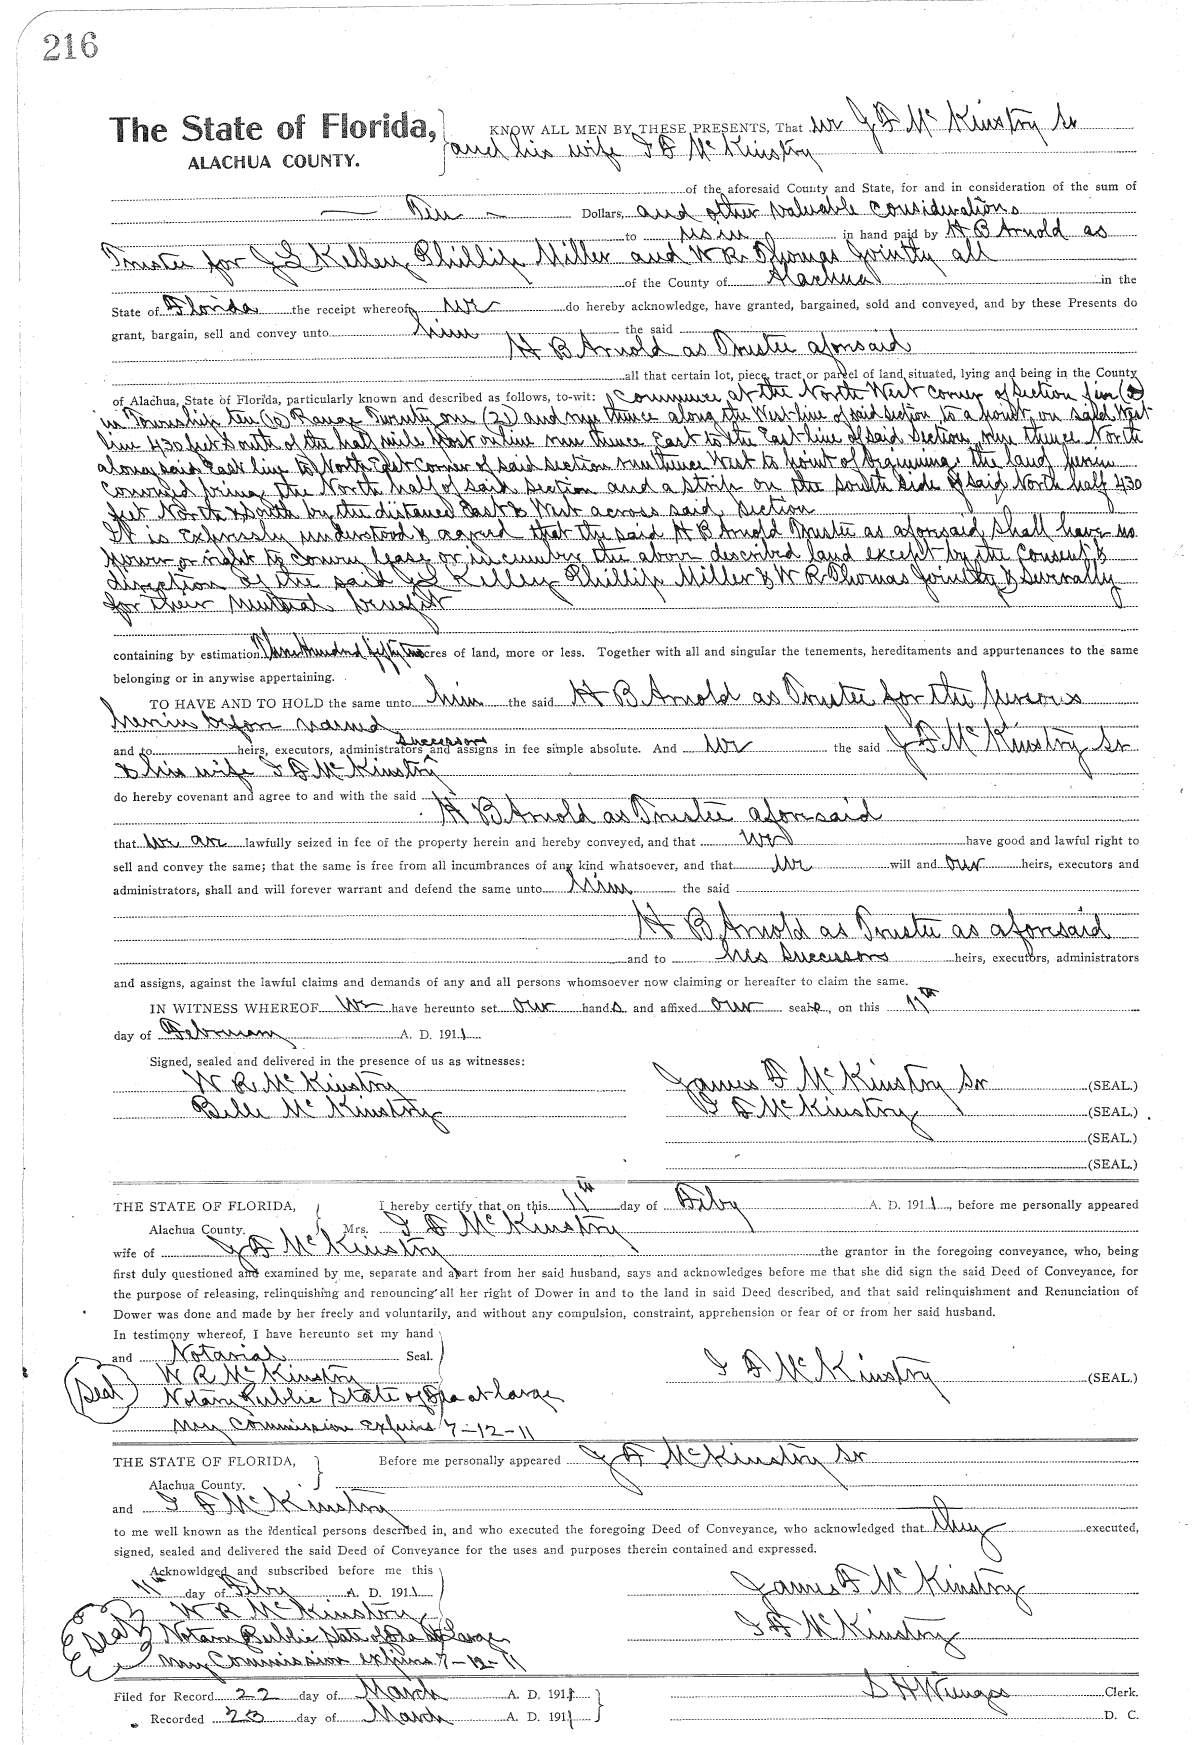 216
The State of Florida, KNOW ALL MEN BY THESE PRESENTS, That we J F McKinstry Sr
ALACHUA COUNTY. and his wife F D McKinstry
of the aforesaid County and State, for and in consideration of the sum of
Ten Dollars, and other valuable considerations
to us in in hand paid by H B Arnold as
Trustee for J L Kelley, Phillip Miller and W R Thomas Jointly all
of the County of Alachua in the
State of Florida the receipt whereof we do hereby acknowledge, have granted, bargained, sold and conveyed, and by these Presents do
grant, bargain, sell and convey unto him the said
H B Arnold as Trustee aforesaid
all that certain lot, piece, tract or parcel of land, situated, lying and being in the County
of Alachua, State of Florida, particularly known and described as follows, to-wit: Commence at the North West corner of Section
in Township ten (10) Range Twenty one (21) and run thence along the West line of said section to a point on said West
line 430 feet South of the half mile post on line run thence East to the East line of said Section, run thence North
along said East line to North East Corner of said section run thence West to point of beginning, the land herein
conveyed being the North half of said section and a strip on the South side of said North half 430
feet North & South by the distance East & West across said section
It is expressly understood & agreed that the said H B Arnold Trustee as aforesaid shall have no
power or right to convey lease or incumber the above described land except by the consent &
direction of the said J L Kelley, Phillip Miller & W R Thomas Jointly & Severally
for their mutual benefit
containing by estimation Three Hundred fifty two acres of land, more or less. Together with all and singular the tenements, hereditaments and appurtenances to the same
belonging or in anywise appertaining.
TO HAVE AND TO HOLD the same unto him the said H B Arnold as Trustee for the persons
herein before named
and to heirs, executors, administrators successors and assigns in fee simple absolute. And we the said J F McKinstry Sr
& his wife F D McKinstry
do hereby covenant and agree to and with the said
H B Arnold as Trustee aforesaid
that we are lawfully seized in fee of the property herein and hereby conveyed, and that we have good and lawful right to
sell and convey the same; that the same is free from all incumbrances of any kind whatsoever, and that we will and our heirs, executors and
administrators, shall and will forever warrant and defend the same unto him the said
H B Arnold as Trustee as aforesaid
and to his successors heirs, executors, administrators
and assigns, against the lawful claims and demands of any and all persons whomsoever now claiming or hereafter to claim the same.
IN WITNESS WHEREOF We have hereunto set our hands and affixed our seals, on this 11th
day of February A. D. 1911
Signed, sealed and delivered in the presence of us as witnesses:
W R McKinstry James F McKinstry Sr (SEAL.)
Belle McKinstry F D McKinstry (SEAL.)
(SEAL.)
(SEAL.)
THE STATE OF FLORIDA, I hereby certify that on this 11th day of Feby A. D. 1911, before me personally appeared
Alachua County. Mrs. F D McKinstry
wife of J F McKinstry the grantor in the foregoing conveyance, who, being
first duly questioned and examined by me, separate and apart from her said husband, says and acknowledges before me that she did sign the said Deed of Conveyance, for
the purpose of releasing, relinquishing and renouncing all her right of Dower in and to the land in said Deed described, and that said relinquishment and Renunciation of
Dower was done and made by her freely and voluntarily, and without any compulsion, constraint, apprehension or fear of or from her said husband.
In testimony whereof, I have hereunto set my hand
and Notarial Seal.
W R McKinstry F D McKinstry (SEAL.)
Seal Notary Public State of Fla at large
My Commission expires 7-12-11
THE STATE OF FLORIDA, Before me personally appeared J F McKinstry Sr
Alachua County.
and F D McKinstry
to me well known as the identical persons described in, and who executed the foregoing Deed of Conveyance, who acknowledged that they executed,
signed, sealed and delivered the said Deed of Conveyance for the uses and purposes therein contained and expressed.
Acknowldged and subscribed before me this
11th day of Feby A. D. 1911 James F McKinstry
W R McKinstry
Seal Notary Public State of Fla At Large F D McKinstry
My Commission expires 7-12-11
Filed for Record 22 day of March A. D. 1911 S H Wienges Clerk.
Recorded 23 day of March A. D. 1911 D. C.